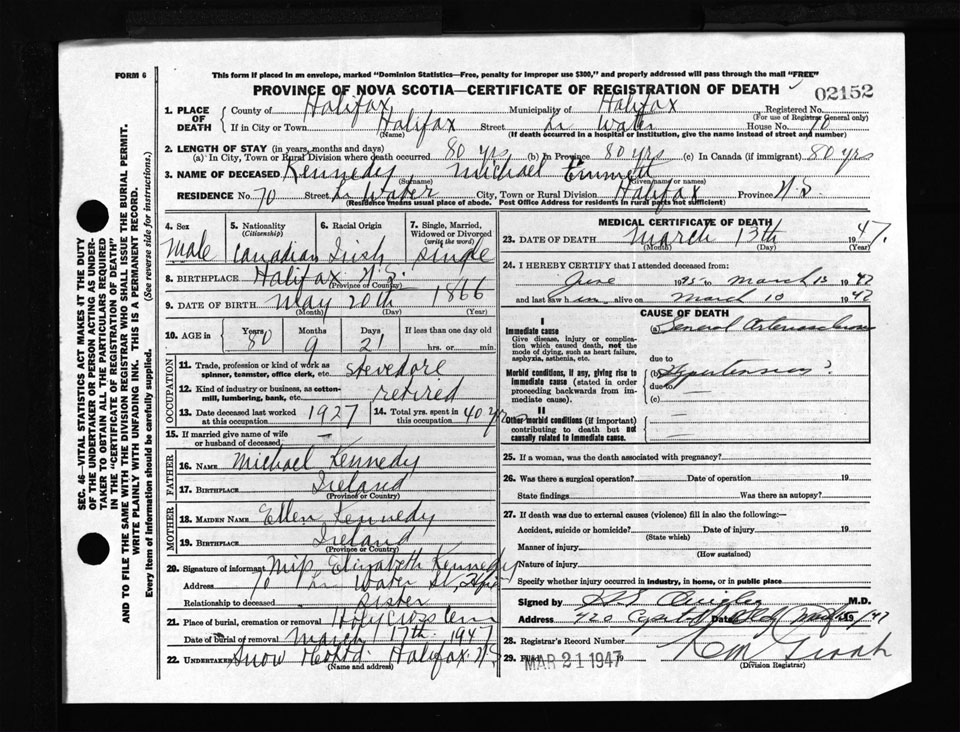 FORM 6
This form if placed in an envelope, marked "Dominion Statistics—Free, penalty for improper use $300," and properly addressed will pass through the mail "FREE"
PROVINCE OF NOVA SCOTIA—CERTIFICATE OF REGISTRATION OF DEATH
02152
1. PLACE OF DEATH
County of Halifax Municipality of Halifax Registered No.
(For use of Registrar General only)
If in City or Town Halifax Street Water House No. 70
(Name) (If death occurred in a hospital or institution, give the name instead of street and number)
2. LENGTH OF STAY (in years, months and days)
(a) In City, Town or Rural Division where death occurred 80 yrs (b) In Province 80 yrs (c) In Canada (if immigrant) 80 yrs
3. NAME OF DECEASED Kennedy Michael Emmett
(Surname) (Given name or names)
RESIDENCE No. 70 Street Water City, Town or Rural Division Halifax Province N.S.
(Residence means usual place of abode. Post Office Address for residents in rural parts not sufficient)
4. Sex Male
5. Nationality (Citizenship) Canadian
6. Racial Origin Irish
7. Single, Married, Widowed or Divorced (write the word) Single
8. BIRTHPLACE Halifax N.S.
(Province or Country)
9. DATE OF BIRTH May 20th 1866
(Month) (Day) (Year)
10. AGE in Years 80 Months 9 Days 21 If less than one day old
hrs. or min.
OCCUPATION
11. Trade, profession or kind of work as spinner, teamster, office clerk, etc. Stevedore
12. Kind of industry or business, as cotton-mill, lumbering, bank, etc. retired
13. Date deceased last worked at this occupation 1927
14. Total yrs. spent in this occupation 40 yrs
15. If married give name of wife or husband of deceased —
FATHER
16. NAME Michael Kennedy
17. BIRTHPLACE Ireland
(Province or Country)
MOTHER
18. MAIDEN NAME Ellen Kennedy
19. BIRTHPLACE Ireland
(Province or Country)
20. Signature of informant Miss Elizabeth Kennedy
Address 70 Water St,
Relationship to deceased Sister
21. Place of burial, cremation or removal Holy Cross Cem
Date of burial or removal March 17th 1947
22. UNDERTAKER Snow Halifax N.S.
(Name and address)
MEDICAL CERTIFICATE OF DEATH
23. DATE OF DEATH March 13th 1947.
(Month) (Day) (Year)
24. I HEREBY CERTIFY that I attended deceased from:
June to March 13 1947
and last saw him alive on March 10 1947
CAUSE OF DEATH
I
Immediate cause
Give disease, injury or complication which caused death, not the mode of dying, such as heart failure, asphyxia, asthenia, etc.
(a) General
due to
Morbid conditions, if any, giving rise to immediate cause (stated in order proceeding backwards from immediate cause).
(b) Hypertension ?
due to
(c) —
II
Other morbid conditions (if important) contributing to death but not causally related to immediate cause.
25. If a woman, was the death associated with pregnancy?
26. Was there a surgical operation? Date of operation 19
State findings Was there an autopsy?
27. If death was due to external causes (violence) fill in also the following:—
Accident, suicide or homicide? Date of injury 19
(State which)
Manner of injury
(How sustained)
Nature of injury
Specify whether injury occurred in industry, in home, or in public place
Signed by M.D.
Address 420 Date 1947
28. Registrar's Record Number
29. Filed MAR 21 1947 19
(Division Registrar)
SEC. 46—VITAL STATISTICS ACT MAKES IT THE DUTY
OF THE UNDERTAKER OR PERSON ACTING AS UNDERTAKER TO OBTAIN ALL THE PARTICULARS REQUIRED
IN THE "CERTIFICATE OF REGISTRATION OF DEATH"
AND TO FILE THE SAME WITH THE DIVISION REGISTRAR WHO SHALL ISSUE THE BURIAL PERMIT.
WRITE PLAINLY WITH UNFADING INK. THIS IS A PERMANENT RECORD.
Every item of information should be carefully supplied. (See reverse side for instructions.)